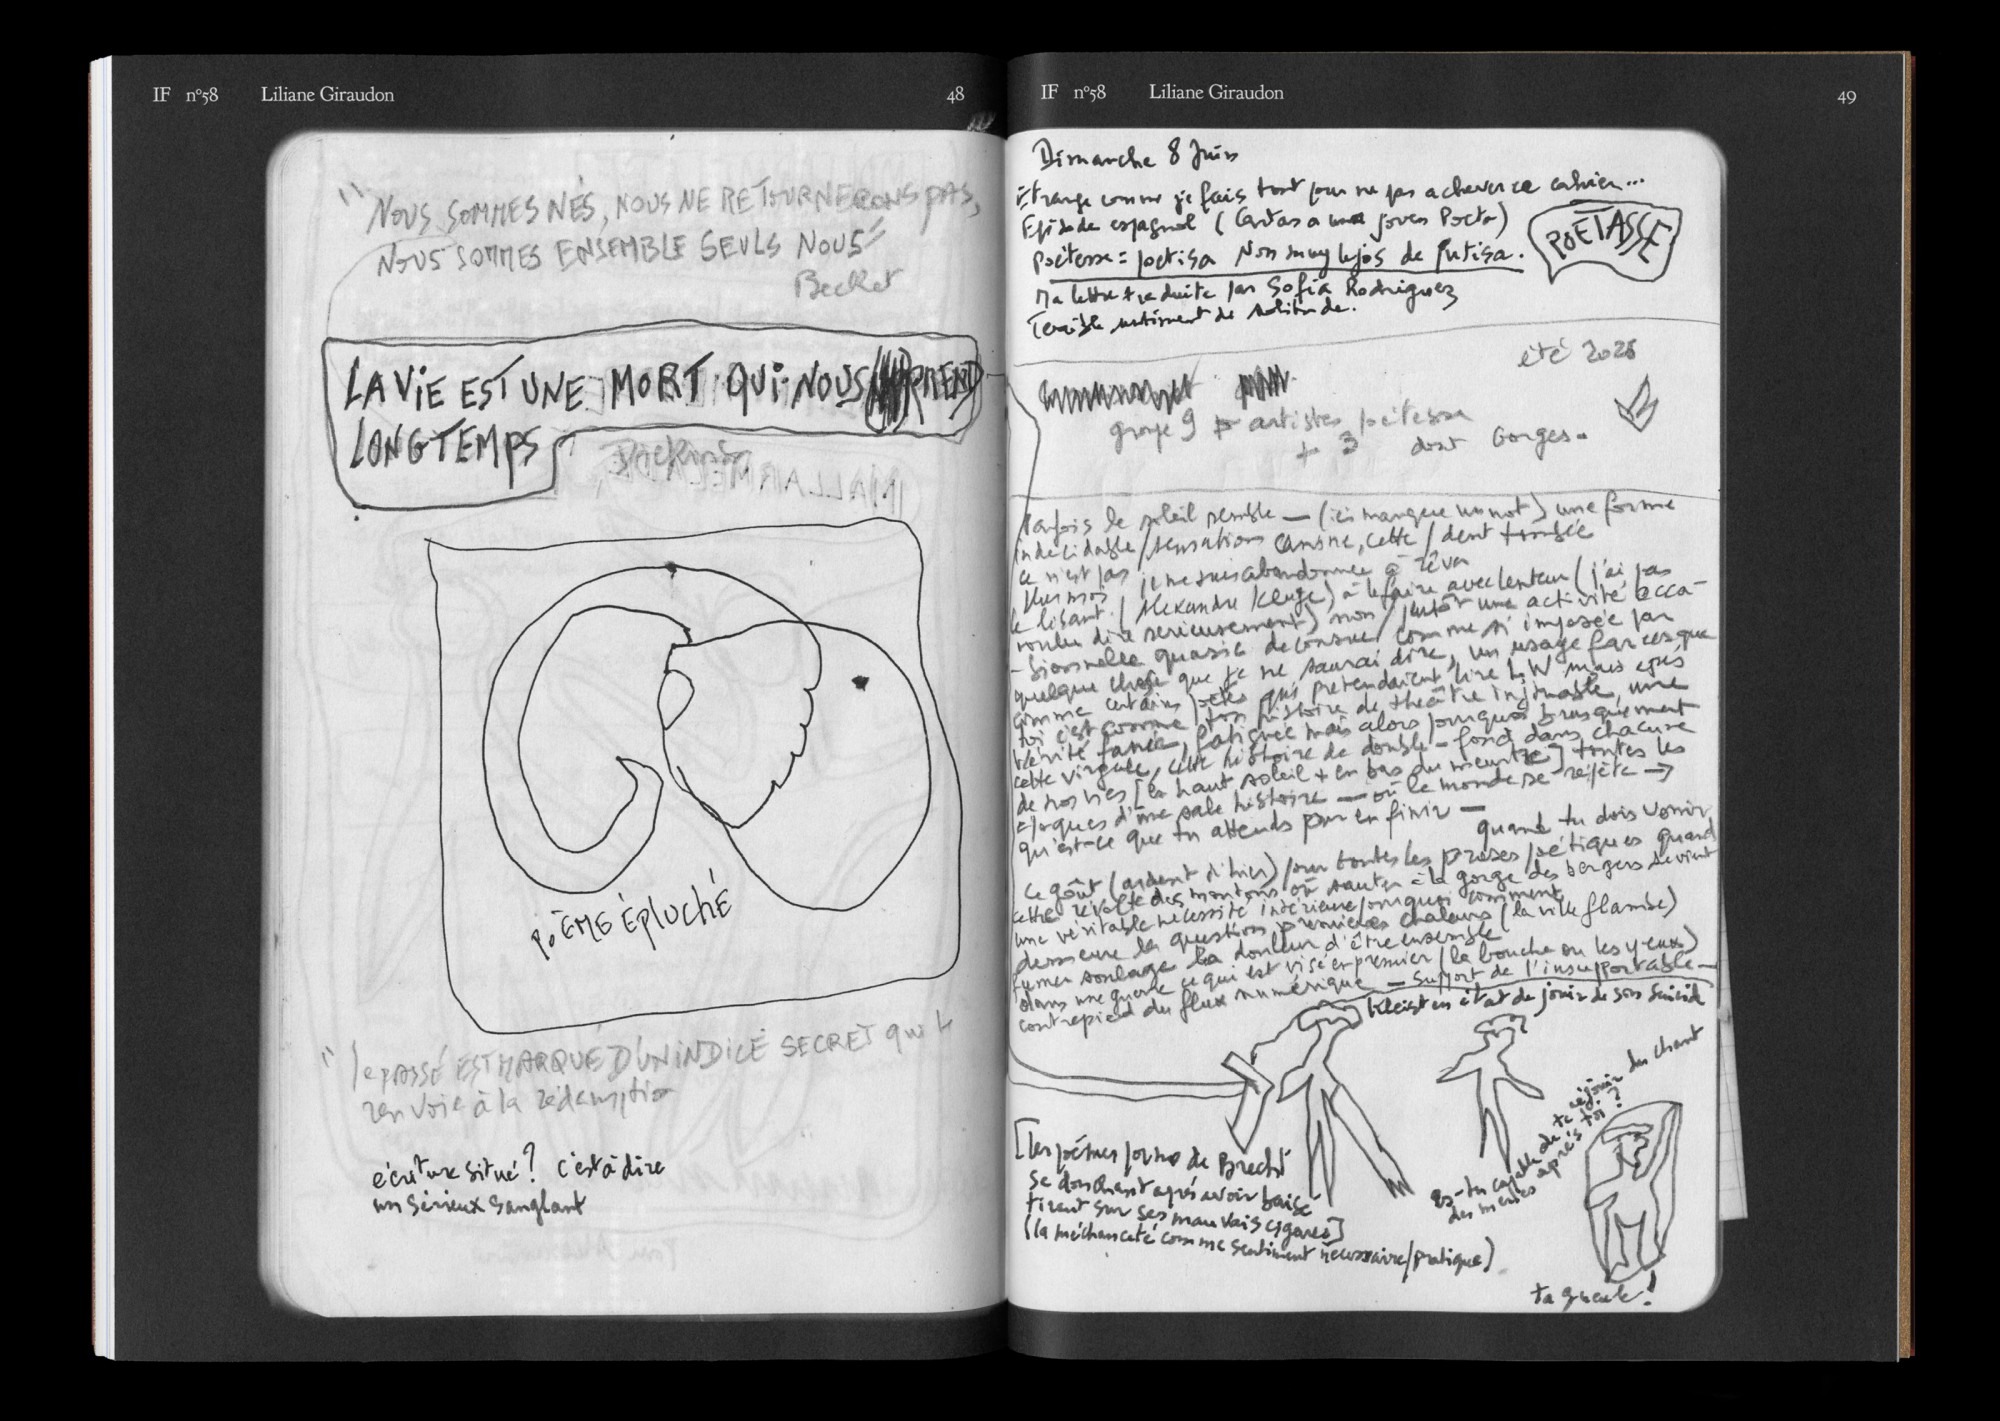 IF n°58 Liliane Giraudon 48
"NOUS SOMMES NÉS, NOUS NE RETOURNERONS PAS,
NOUS SOMMES ENSEMBLE SEULS NOUS"
Becket
LA VIE EST UNE MORT QUI NOUS PREND
LONGTEMPS
POÈME ÉPLUCHÉ
"le PASSÉ EST MARQUÉ D'UN INDICE SECRET qui le
renvoie à la rédemption
écriture situé? c'est à dire
un sérieux sanglant
IF n°58 Liliane Giraudon 49
Dimanche 8 Juin
Étrange comme je fais tout pour ne pas achever ce cahier...
Episode espagnol (Cartas a una joven Poeta)
POÉTASSE
Poétesse = poetisa Non muy lejos de putisa.
Ma lettre traduite par Sofia Rodriguez
Terrible sentiment de solitude.
été 2025
groupe 9 artistes poétesses
+ 3 dont Gorges.
Parfois le soleil semble — (ici manque un mot) une forme
indécidable / sensations canine, cette / dent tombée
ce n'est pas je me suis abandonnée à rêver
le lisant / Alexandre Kluge) à le faire avec lenteur (j'ai pas
voulu dire sérieusement) non / plutôt une activité occa-
-sionnelle quasie deconsue / comme si imposée par
quelque chose que je ne saurai dire, un usage farcesque
comme certains poètes qui prétendaient lire L.W mais
toi c'est comme ton histoire de théâtre infinable, une
vérité fanée, fatiguée mais alors pourquoi brusquement
cette virgule, cette histoire de double-fond dans chacune
de nos vies [en haut soleil + en bas du meurtre] toutes les
époques d'une sale histoire — où le monde se répète →
qu'est-ce que tu attends pour en finir —
quand tu dois vomir
ce goût (ardent d'hier) sur toutes les proses poétiques quand
cette révolte des moutons où sauter à la gorge des bergers devient
une véritable nécessité intérieure pourquoi comment
demeure la question premières chaleurs (la ville flambe)
fumer soulage la douleur d'être ensemble
dans une guerre ce qui est visé en premier / la bouche ou les yeux)
contrepied du flux numérique — support de l'insupportable —
Kleist en état de jouir de son suicide
Es-tu capable de te réjouir du chant
des merles après toi ?
[les poèmes porno de Brecht
se douchant après avoir baisé
tirant sur ses mauvais cigares]
(la méchanceté comme sentiment nécessaire/pratique)
ta gueule!